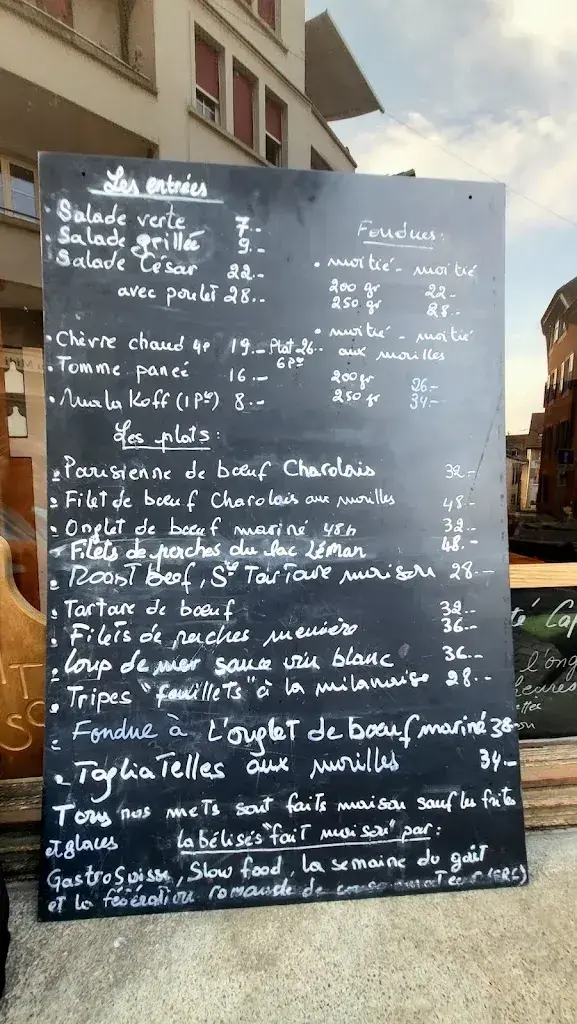 Les entrées
Salade verte 7.-
Salade grillée 9.-
Salade César 22.-
avec poulet 28.-
Chèvre chaud 4P 19.- Plat 26.-
6 Pce
Tomme panée 16.-
Malakoff (1 Pce) 8.-
Fondues:
moitié - moitié
200 gr 22.-
250 gr 28.-
moitié - moitié
aux morilles
200 gr 26.-
250 gr 34.-
Les plats:
Parisienne de bœuf Charolais 32.-
Filet de bœuf Charolais aux morilles 48.-
Onglet de bœuf mariné 48h 32.-
Filets de perches du lac Léman 48.-
Roast beef, Sce Tartare maison 28.-
Tartare de bœuf 32.-
Filets de perches meunière 36.-
Loup de mer sauce vin blanc 36.-
Tripes "feuillets" à la milanaise 28.-
Fondue à L'onglet de bœuf mariné 38.-
Tagliatelles aux morilles 34.-
Tous nos mets sont faits maison sauf les frites
et glaces labélisés "fait maison" par:
GastroSuisse, Slow food, la semaine du goût
et la fédération romande de consommateur (FRC)
l'ong